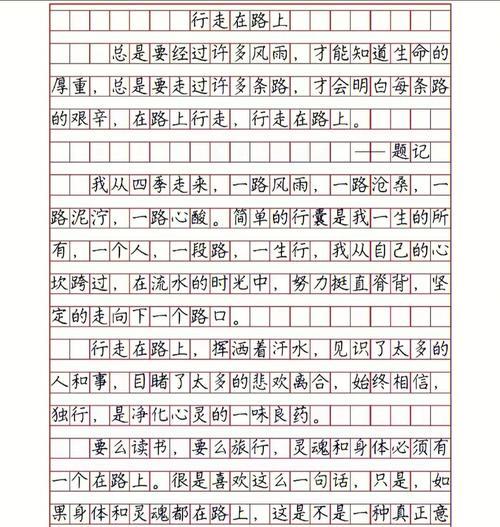 行走在路上
总是要经过许多风雨，才能知道生命的
厚重，总是要走过许多条路，才会明白每条路
的艰辛，在路上行走，行走在路上。
——题记
我从四季走来，一路风雨，一路沧桑，一
路泥泞，一路心酸。简单的行囊是我一生的所
有，一个人，一段路，一生行，我从自己的心
坎跨过，在流水的时光中，努力挺直脊背，坚
定的走向下一个路口。
行走在路上，挥洒着汗水，见识了太多的
人和事，目睹了太多的悲欢离合，始终相信，
独行，是净化心灵的一味良药。
要么读书，要么旅行，灵魂和身体必须有
一个在路上。很是喜欢这么一句话，只是，如
果身体和灵魂都在路上，这是不是一种真正意